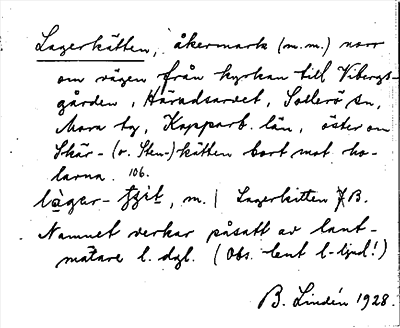 Lagerkätten, åkermark (m.m.) norr
om vägen från kyrkan till Vibergs-
gården, Häradsarvet, Sollerö sn,
Mora tg, Kopparb. län, öster om
Skär- (o. Sten-)kätten bort mot ho-
larna. 106.
lagar- m. | Lagerkitten J.B.
Namnet verkar påsatt av lant-
mätare l. dyl. (Obs. tent l-ljud!)
B. Lindén 1928.